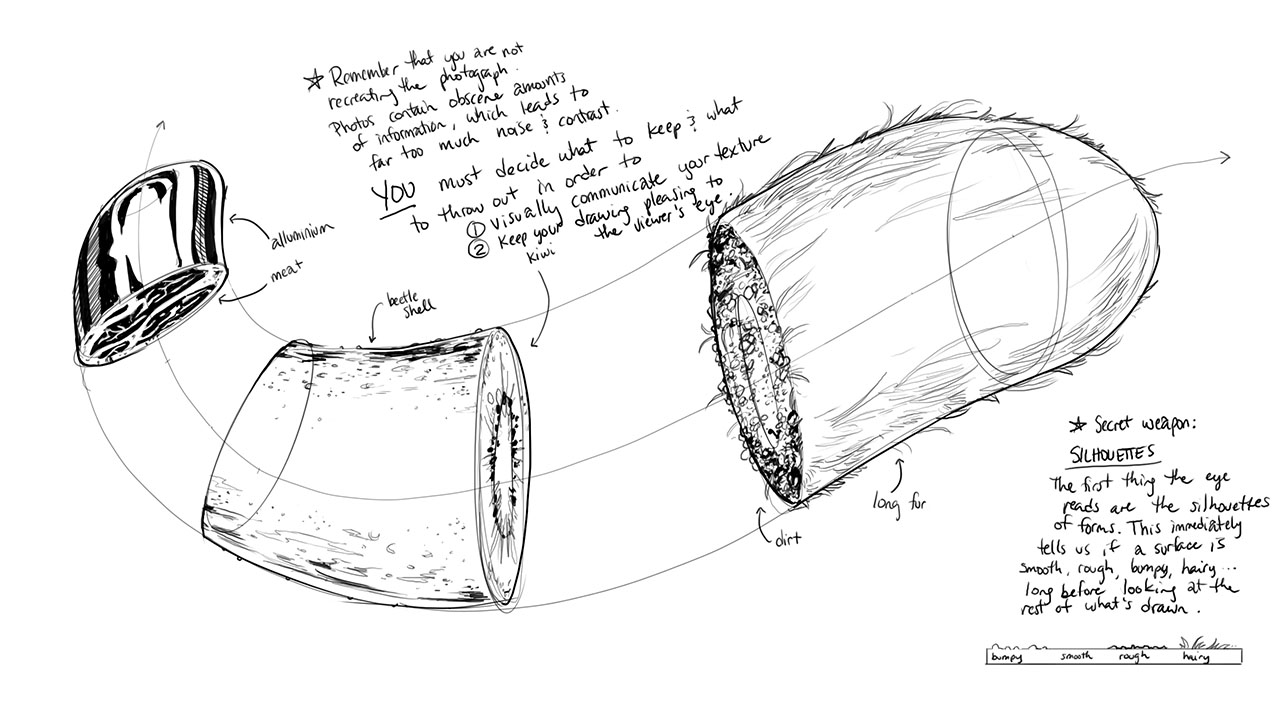 ☆ Remember that you are not
recreating the photograph.
Photos contain obscene amounts
of information, which leads to
far too much noise & contrast.
YOU must decide what to keep & what
to throw out in order to
① visually communicate your texture
② keep your drawing pleasing to
the viewer's eye.
alluminium
meat
beetle
shell
kiwi
dirt
long fur
☆ Secret weapon:
SILHOUETTES
The first thing the eye
reads are the silhouettes
of forms. This immediately
tells us if a surface is
smooth, rough, bumpy, hairy...
long before looking at the
rest of what's drawn.
bumpy smooth rough hairy